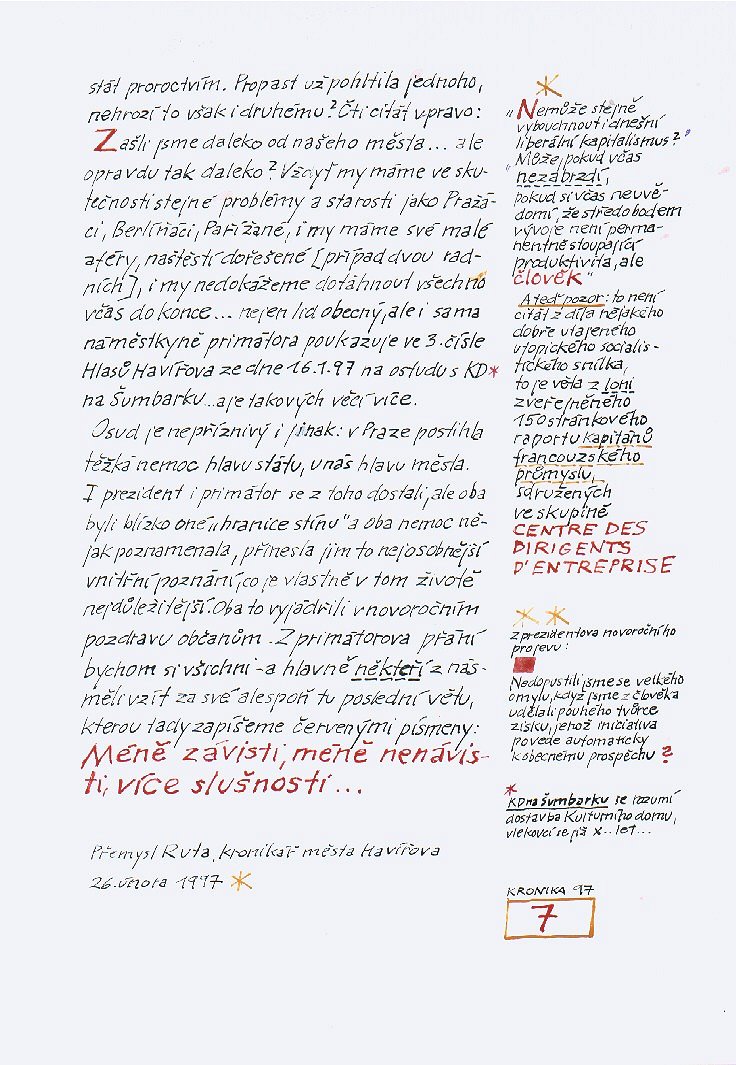 stát proroctvím. Propast už pohltila jednoho,
nehrozí to však i druhému? Čti citát vpravo:
Zašli jsme daleko od našeho města... ale
opravdu tak daleko? Vždyť my máme ve sku-
tečnosti stejné problémy a starosti jako Pražá-
ci, Berlíňáci, Pařížané, i my máme své malé
aféry, naštěstí dořešené [případ dvou rad-
ních], i my nedokážeme dotáhnout všechno
včas do konce... nejen lid obecný, ale i sama
náměstkyně primátora poukazuje ve 3. čísle
Hlasů Havířova ze dne 16.1.97 na ostudu s KD*
na Šumbarku...a je takových věcí více.
Osud je nepříznivý i jinak: v Praze postihla
těžká nemoc hlavu státu, u nás hlavu města.
I prezident i primátor se z toho dostali, ale oba
byli blízko oné „hranice stínu" a oba nemoc ně-
jak poznamenala, přinesla jim to nejosobnější
vnitřní poznání, co je vlastně v tom životě
nejdůležitější. Oba to vyjádřili v novoročním
pozdravu občanům. Z primátorova přání
bychom si všichni - a hlavně někteří z nás -
měli vzít za své alespoň tu poslední větu,
kterou tady zapíšeme červenými písmeny:
Méně závisti, méně nenávis-
ti, více slušnosti...
Přemysl Ruta, kronikář města Havířova
26. února 1997 *
*
„Nemůže stejně
vybouchnout i dnešní
liberální kapitalismus?"
„Může, pokud včas
nezabrzdí,
pokud si včas neuvě-
domí, že středobodem
vývoje není perma-
nentně stoupající
produktivita, ale
člověk"
A teď pozor: to není
citát z díla nějakého
dobře utajeného
utopického socialis-
tického snílka,
to je věta z loni
zveřejněného
150 stránkového
raportu kapitánů
francouzského
průmyslu,
sdružených
ve skupině
CENTRE DES
DIRIGENTS
D'ENTREPRISE
* *
z prezidentova novoročního
projevu:
Nedopustili jsme se velkého
omylu, když jsme z člověka
udělali pouhého tvůrce
zisku, jehož iniciativa
povede automaticky
k obecnému prospěchu?
*
KD na Šumbarku se rozumí
dostavba Kulturního domu,
vlekoucí se již x.. let...
KRONIKA 97
7